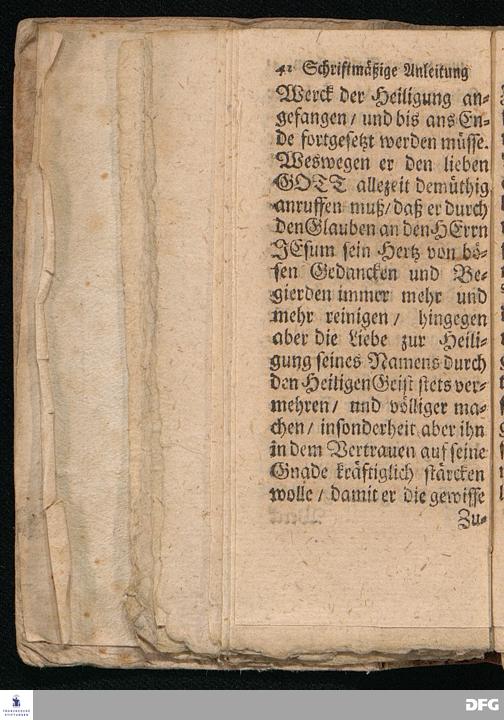 42 Schriftmäßige Anleitung
Werck der Heiligung an-
gefangen / und bis ans En-
de fortgesetzt werden müsse.
Weswegen er den lieben
GOTT allezeit demüthig
anruffen muß / daß er durch
den Glauben an den HErrn
JEsum sein Hertz von bö-
sen Gedancken und Be-
gierden immer mehr und
mehr reinigen / hingegen
aber die Liebe zur Heili-
gung seines Namens durch
den Heiligen Geist stets ver-
mehren / und völliger ma-
chen / insonderheit aber ihn
in dem Vertrauen auf seine
Gnade kräftiglich stärcken
wolle / damit er die gewisse
Zu-
FRANCKESCHE
STIFTUNGEN
DFG